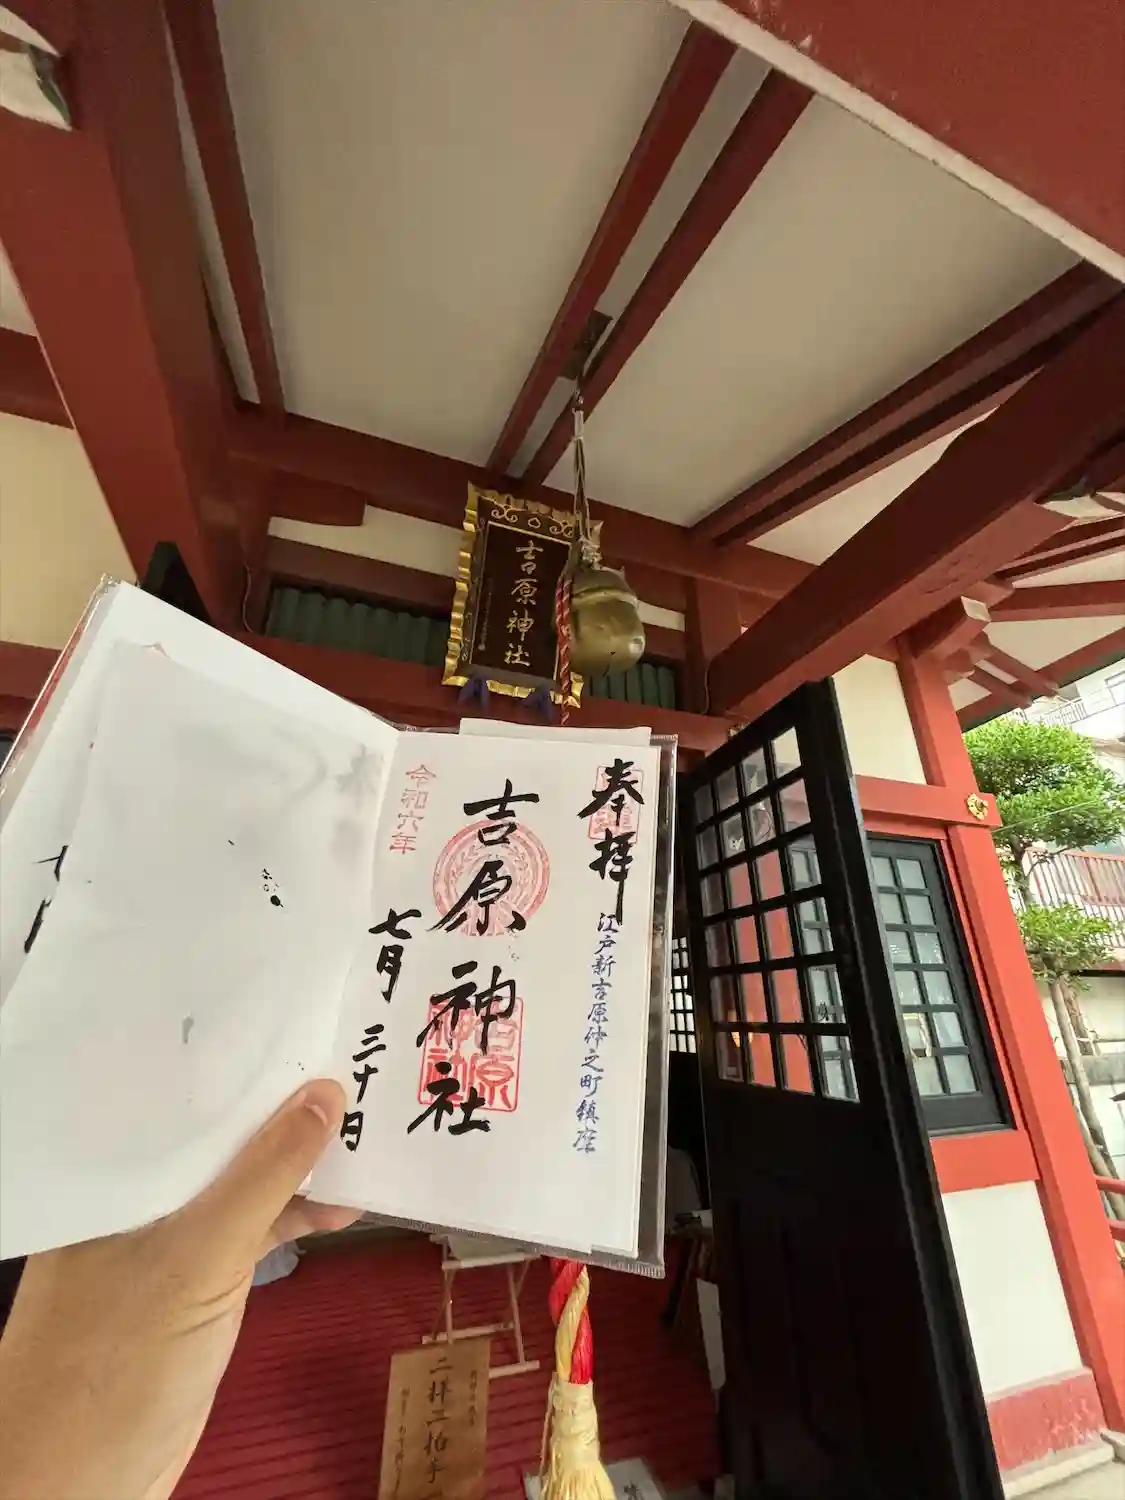 吉原神社
奉拝
江戸新吉原仲之町鎮座
吉原神社
吉原
神社
令和六年
七月三十日
二拝二拍手